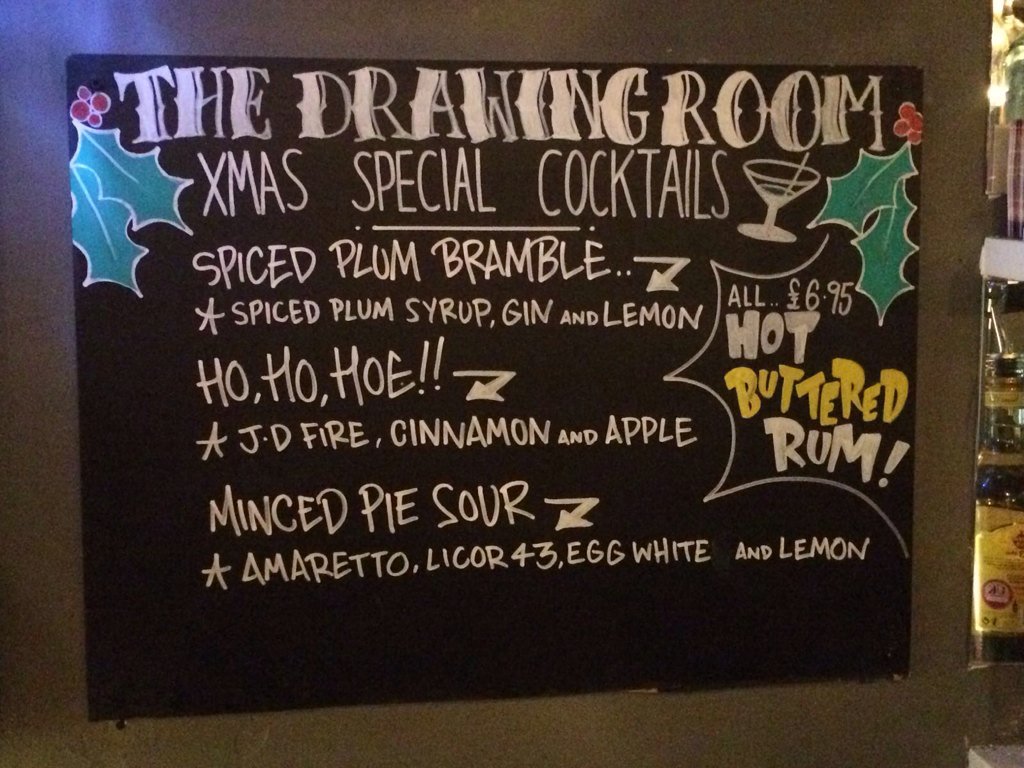 THE DRAWING ROOM
XMAS SPECIAL COCKTAILS
SPICED PLUM BRAMBLE..
* SPICED PLUM SYRUP, GIN AND LEMON
HO, HO, HOE!!
* J.D FIRE, CINNAMON AND APPLE
MINCED PIE SOUR
* AMARETTO, LICOR 43, EGG WHITE AND LEMON
ALL.. £6.95
HOT
BUTTERED
RUM!